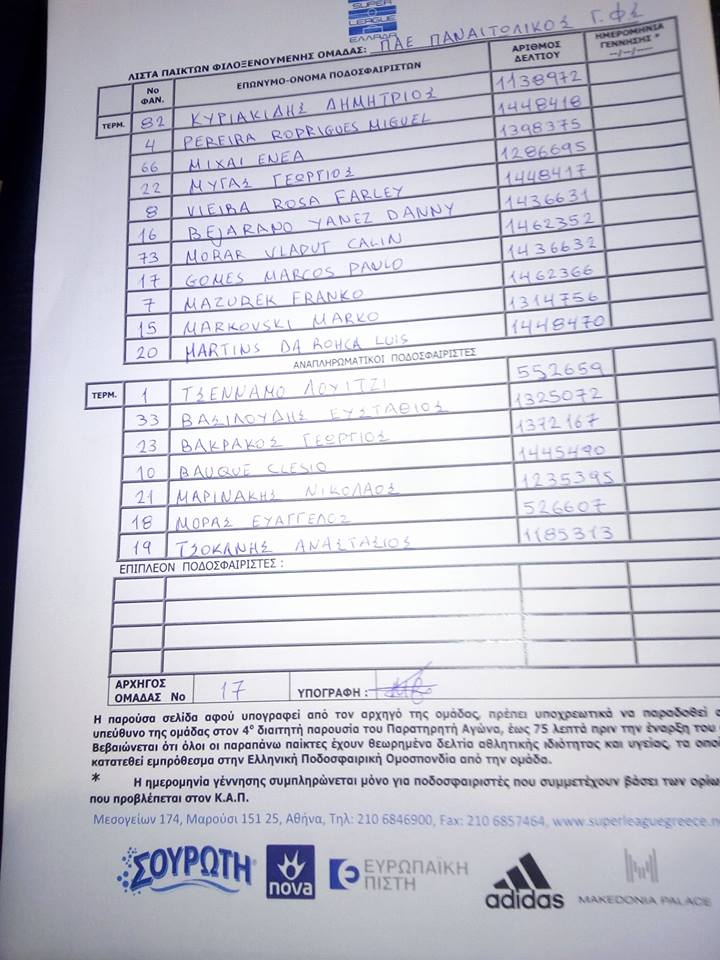 SUPER LEAGUE ΕΛΛΑΔΑ
ΛΙΣΤΑ ΠΑΙΚΤΩΝ ΦΙΛΟΞΕΝΟΥΜΕΝΗΣ ΟΜΑΔΑΣ: ΠΑΕ ΠΑΝΑΙΤΩΛΙΚΟΣ Γ.Φ.Σ
Νο ΦΑΝ. ΕΠΩΝΥΜΟ-ΟΝΟΜΑ ΠΟΔΟΣΦΑΙΡΙΣΤΩΝ ΑΡΙΘΜΟΣ ΔΕΛΤΙΟΥ ΗΜΕΡΟΜΗΝΙΑ ΓΕΝΝΗΣΗΣ * --/--/----
ΤΕΡΜ. 82 ΚΥΡΙΑΚΙΔΗΣ ΔΗΜΗΤΡΙΟΣ 1138972
4 PEREIRA RODRIGUES MIGUEL 1448418
66 ΜΙΧΑΙ ΕΝΕΑ 1398375
22 ΜΥΓΑΣ ΓΕΩΡΓΙΟΣ 1286695
8 VIEIRA ROSA FARLEY 1448417
16 BEJARANO YANEZ DANNY 1436631
73 MORAR VLADUT CALIN 1462352
17 GOMES MARCOS PAULO 1436632
7 MAZUREK FRANKO 1462366
15 MARKOVSKI MARKO 1314756
20 MARTINS DA ROHCA LUIS 1448470
ΑΝΑΠΛΗΡΩΜΑΤΙΚΟΙ ΠΟΔΟΣΦΑΙΡΙΣΤΕΣ
ΤΕΡΜ. 1 ΤΣΕΝΝΑΜΟ ΛΟΥΙΤΖΙ 552659
33 ΒΑΣΙΛΟΥΔΗΣ ΕΥΣΤΑΘΙΟΣ 1325072
23 ΒΑΚΡΑΚΟΣ ΓΕΩΡΓΙΟΣ 1372167
10 BAUQUE CLESIO 1445490
21 ΜΑΡΙΝΑΚΗΣ ΝΙΚΟΛΑΟΣ 1235395
18 ΜΟΡΑΣ ΕΥΑΓΓΕΛΟΣ 526607
19 ΤΣΟΚΑΝΗΣ ΑΝΑΣΤΑΣΙΟΣ 1185313
ΕΠΙΠΛΕΟΝ ΠΟΔΟΣΦΑΙΡΙΣΤΕΣ :
ΑΡΧΗΓΟΣ ΟΜΑΔΑΣ Νο 17 ΥΠΟΓΡΑΦΗ :
Η παρούσα σελίδα αφού υπογραφεί από τον αρχηγό της ομάδας, πρέπει υποχρεωτικά να παραδοθεί
υπεύθυνο της ομάδας στον 4ο διαιτητή παρουσία του Παρατηρητή Αγώνα, έως 75 λεπτά πριν την έναρξη του
Βεβαιώνεται ότι όλοι οι παραπάνω παίκτες έχουν θεωρημένα δελτία αθλητικής ιδιότητας και υγείας, τα
κατατεθεί εμπρόθεσμα στην Ελληνική Ποδοσφαιρική Ομοσπονδία από την ομάδα.
* Η ημερομηνία γέννησης συμπληρώνεται μόνο για ποδοσφαιριστές που συμμετέχουν βάσει των
που προβλέπεται στον Κ.Α.Π.
Μεσογείων 174, Μαρούσι 151 25, Αθήνα, Τηλ: 210 6846900, Fax: 210 6857464, www.superleaguegreece.
ΣΟΥΡΩΤΗ nova ΕΥΡΩΠΑΪΚΗ ΠΙΣΤΗ adidas MAKEDONIA PALACE